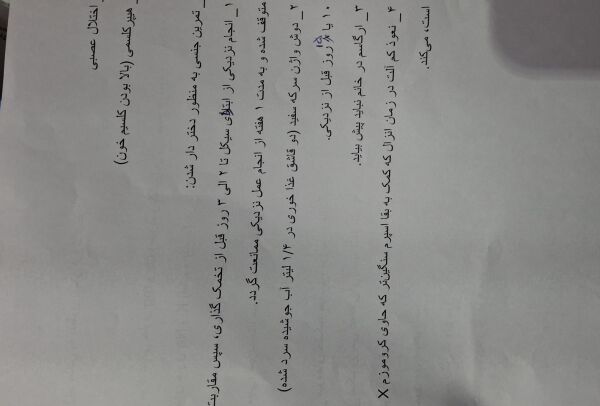 اختلال عصبی
_ هیپرکلسمی (بالا بودن کلسیم خون)
_ تمرین جنسی به منظور دختر دار شدن:
۱_ انجام نزدیکی از ابتدای سیکل تا ۲ الی ۳ روز قبل از تخمک گذاری، سپس مقاربت
متوقف شده و به مدت ۱ هفته از انجام عمل نزدیکی ممانعت گردد.
۲_ دوش واژن سرکه سفید (دو قاشق غذا خوری در ۱/۴ لیتر آب جوشیده سرد شده)
۱۰ یا ۱۵ روز قبل از نزدیکی.
۳_ ارگاسم در خانم نباید پیش بیاید.
۴_ نعوذ کم آلت در زمان انزال که کمک به بقا اسپرم سنگین‌تر که حاوی کروموزم X
است، می‌کند.